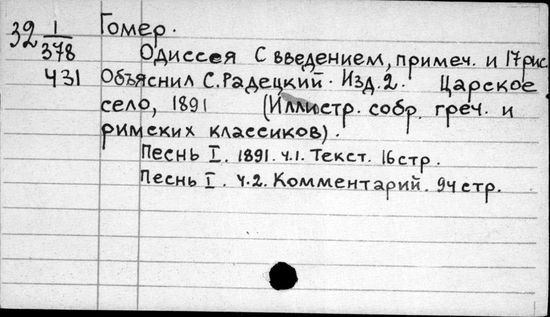 32 1/378 Гомер.
Одиссея С введением, примеч. и 17 рис.
431 Объяснил С. Радецкий. Изд. 2. Царское
село, 1891 (Иллистр. собр. греч. и
римских классиков).
Песнь I. 1891. ч.1. Текст. 16 стр.
Песнь I. ч.2. Комментарий. 94 стр.